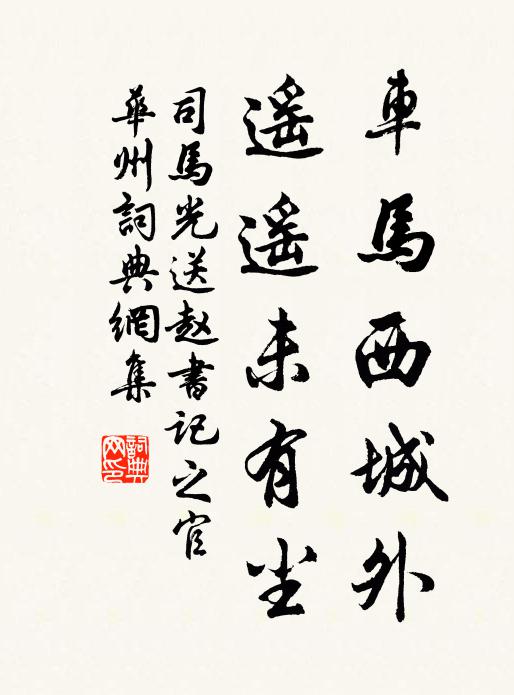 車馬西城外
遥遥未有尘
司馬光送赵書記之官
華州詞典網集
詞典网印